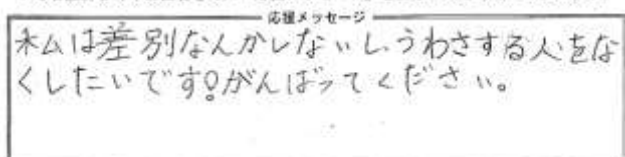 応援メッセージ
私は差別なんかしないし、うわさする人をな
くしたいです！がんばってください。